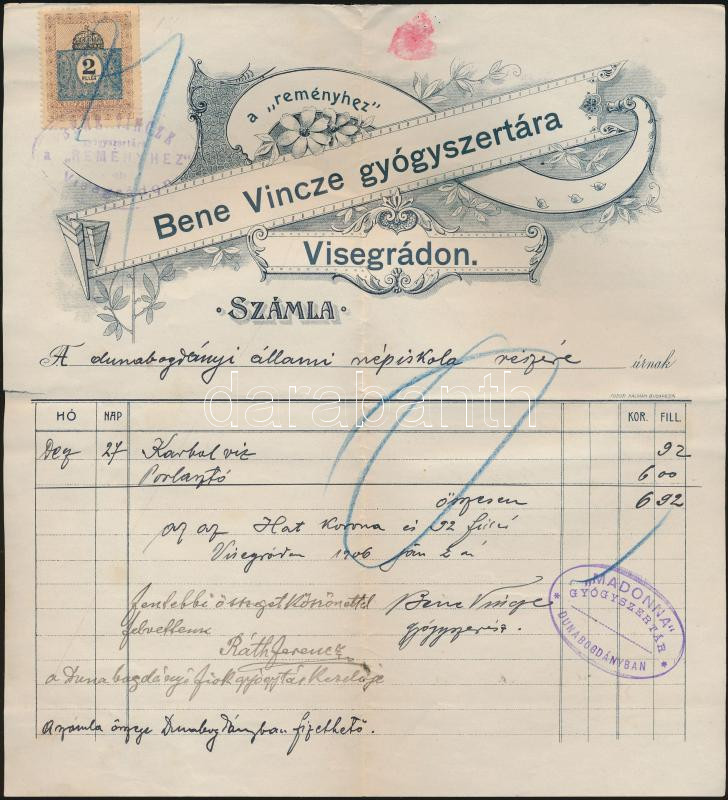 2
FILLÉR
BENE VINCZE
gyógyszertára
a „REMÉNYHEZ"
a „reményhez"
Bene Vincze gyógyszertára
Visegrádon.
SZÁMLA
A dunabogdányi állami népiskola részére úrnak
HÓ NAP KOR. FILL.
Dez 27 Karbol víz 92
Porlasztó 6 00
összesen 6 92
az az Hat korona és 92 fillér
Visegrádon 1906 jan 2 án
Fentebbi összeget köszönettel
felvettem
Bene Vincze
gyógyszerész.
Ráth Ferencz
a Dunabogdányi fiókgyógytár kezelője
A számla összege Dunabogdányban fizethető.
„MADONNA"
GYÓGYSZERTÁR
DUNABOGDÁNYBAN
darabanth